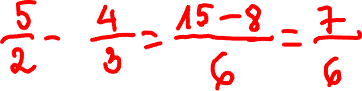 5/2 - 4/3 = (15-8)/6 = 7/6